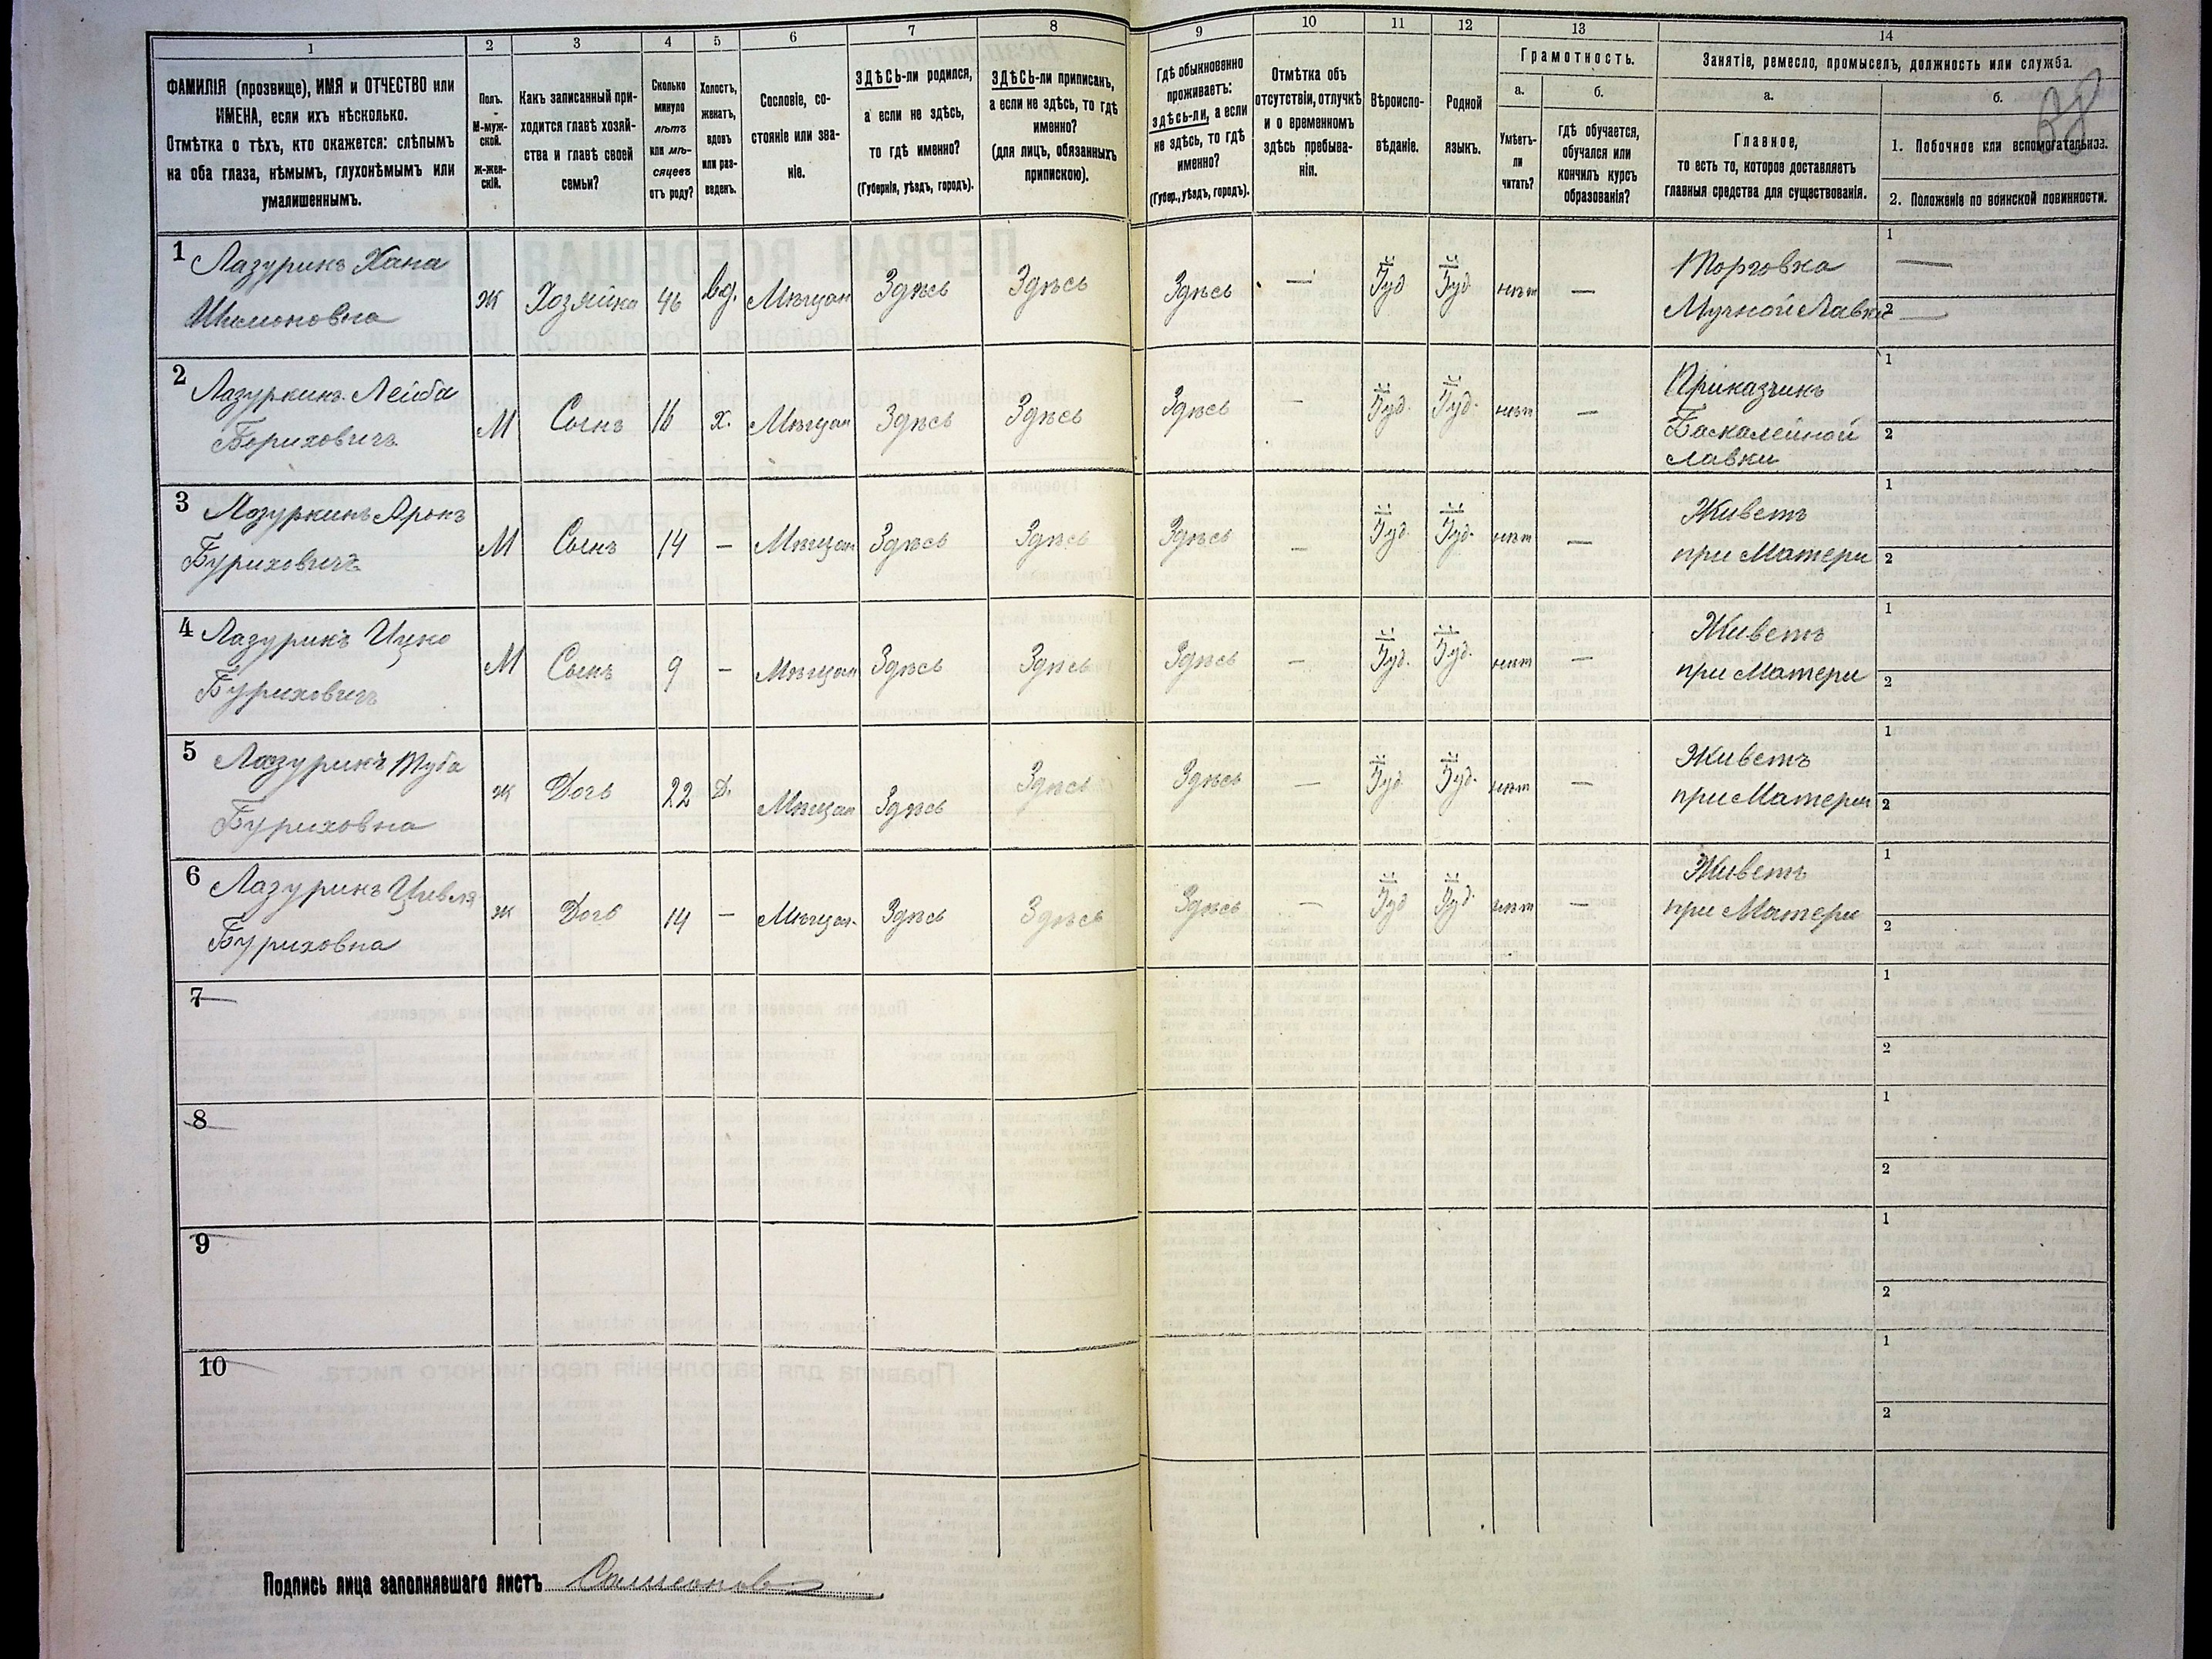 1 2 3 4 5 6 7 8 9 10 11 12 13 14
ФАМИЛІЯ (прозвище), ИМЯ и ОТЧЕСТВО или
ИМЕНА, если ихъ нѣсколько.
Отмѣтка о тѣхъ, кто окажется: слѣпымъ
на оба глаза, нѣмымъ, глухонѣмымъ или
умалишеннымъ.
Полъ.
М-муж-
ской.
ж-жен-
скій.
Какъ записанный при-
ходится главѣ хозяй-
ства и главѣ своей
семьи?
Сколько
минуло
лѣтъ
или мѣ-
сяцевъ
отъ роду?
Холостъ,
женатъ,
вдовъ
или раз-
веденъ.
Сословіе, со-
стояніе или зва-
ніе.
ЗДѢСЬ-ли родился,
а если не здѣсь,
то гдѣ именно?
(Губернія, уѣздъ, городъ).
ЗДѢСЬ-ли приписанъ,
а если не здѣсь, то гдѣ
именно?
(для лицъ, обязанныхъ
припискою).
Гдѣ обыкновенно
проживаетъ:
здѣсь-ли, а если
не здѣсь, то гдѣ
именно?
(Губер., уѣздъ, городъ).
Отмѣтка объ
отсутствіи, отлучкѣ
и о временномъ
здѣсь пребыва-
ніи.
Вѣроиспо-
вѣданіе.
Родной
языкъ.
Грамотность.
а.
Умѣетъ-
ли
читать?
б.
Гдѣ обучается,
обучался или
кончилъ курсъ
образованія?
Занятіе, ремесло, промыселъ, должность или служба.
а.
Главное,
то есть то, которое доставляетъ
главныя средства для существованія.
б.
1. Побочное или вспомогательное.
2. Положеніе по воинской повинности.
1 Лазурикъ Хана
Шимоновна
ж Хозяйка 46 вд. Мѣщан Здѣсь Здѣсь Здѣсь — Іуд Іуд нѣт —
Торговка
Мучной Лавки
1 —
2 —
2 Лазуркинъ Лейба
Бориховичъ
М Сынъ 16 х. Мѣщан Здѣсь Здѣсь Здѣсь — Іуд. Іуд. нѣт —
Приказчикъ
Бакалейной
лавки
1
2
3 Лазуркинъ Аронъ
Буриховичъ
М Сынъ 14 — Мѣщан Здѣсь Здѣсь Здѣсь — Іуд. Іуд. нѣт —
Живетъ
при Матери
1
2
4 Лазурикъ Ицко
Буриховичъ
М Сынъ 9 — Мѣщан Здѣсь Здѣсь Здѣсь — Іуд. Іуд. нѣт —
Живетъ
при Матери
1
2
5 Лазурикъ Туба
Буриховна
ж Дочь 22 Д. Мѣщан Здѣсь Здѣсь Здѣсь — Іуд. Іуд. нѣт —
Живетъ
при Матери
1
2
6 Лазурикъ Цивля
Буриховна
ж Дочь 14 — Мѣщан. Здѣсь Здѣсь Здѣсь — Іуд Іуд. нѣт —
Живетъ
при Матери
1
2
7
1
2
8
1
2
9
1
2
10
1
2
Подпись лица заполнявшаго листъ